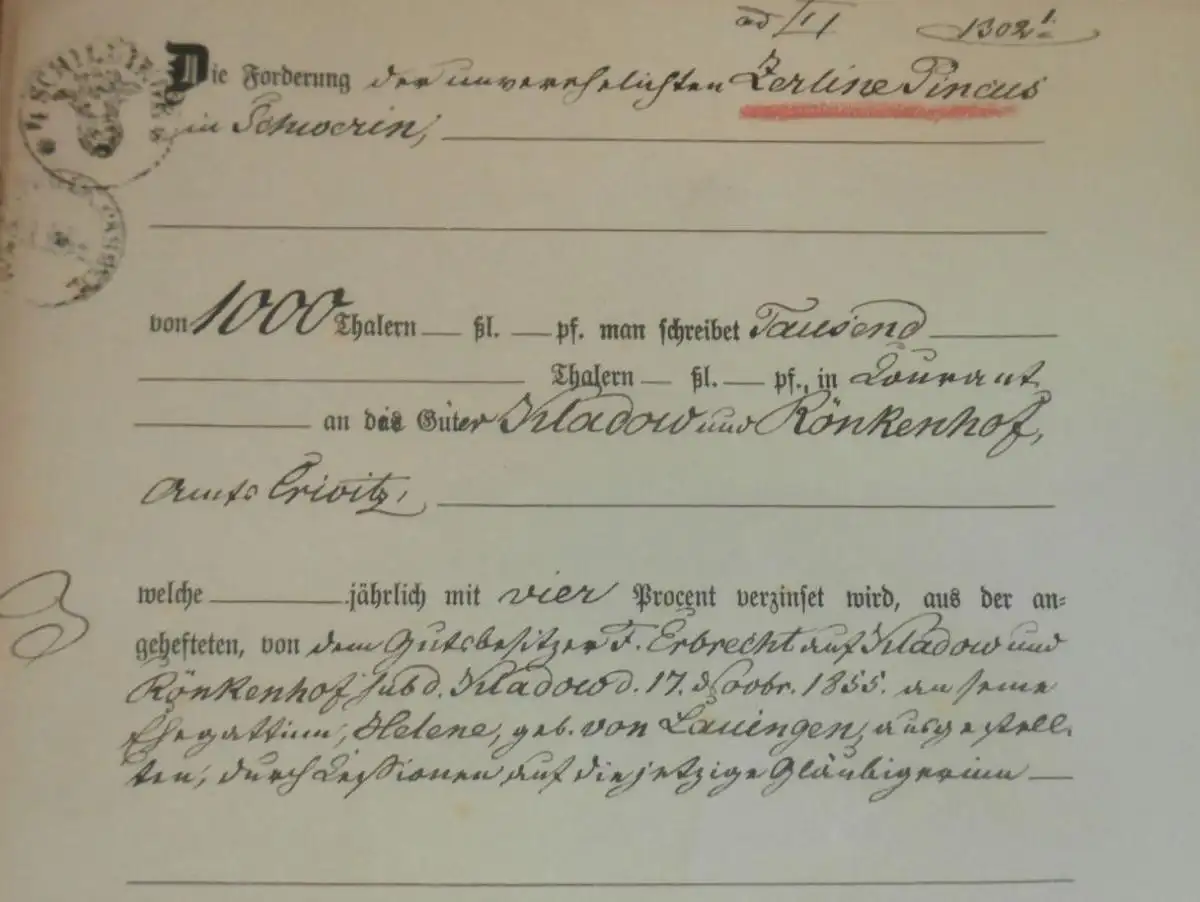 ad III 1302¹
4 SCHILLINGE
Die Forderung der unverehelichten Zerline Pincus
in Schwerin,
von 1000 Thalern — ßl. — pf. man schreibet Tausend
Thalern — ßl. — pf., in Courant
an die Güter Kladow und Rönkenhof,
Amts Crivitz,
welche jährlich mit vier Procent verzinset wird, aus der an-
gehefteten, von dem Gutsbesitzer F. Erbrecht auf Kladow und
Rönkenhof sub d. Kladow d. 17. Novbr. 1855. an seine
Ehegattinn, Helene, geb. von Lauingen, ausgestell-
ten, durch Cessionen auf die jetzige Gläubigerinn —